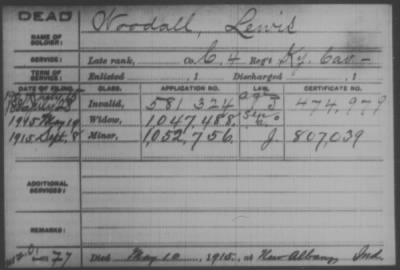 DEAD
NAME OF SOLDIER: Woodall, Lewis
SERVICE: Late rank, Co. C, 4 Reg't Ky. Cav -
TERM OF SERVICE: Enlisted , 1 Discharged , 1
DATE OF FILING. CLASS. APPLICATION NO. LAW. CERTIFICATE NO.
Invalid, 581,324 474,979
1915 May 19 Widow, 1,047,488
1915 Sept. 8 Minor, 1,052,756 J. 807,039
ADDITIONAL SERVICES:
REMARKS:
77 Died May 10, 1915, at New Albany, Ind.